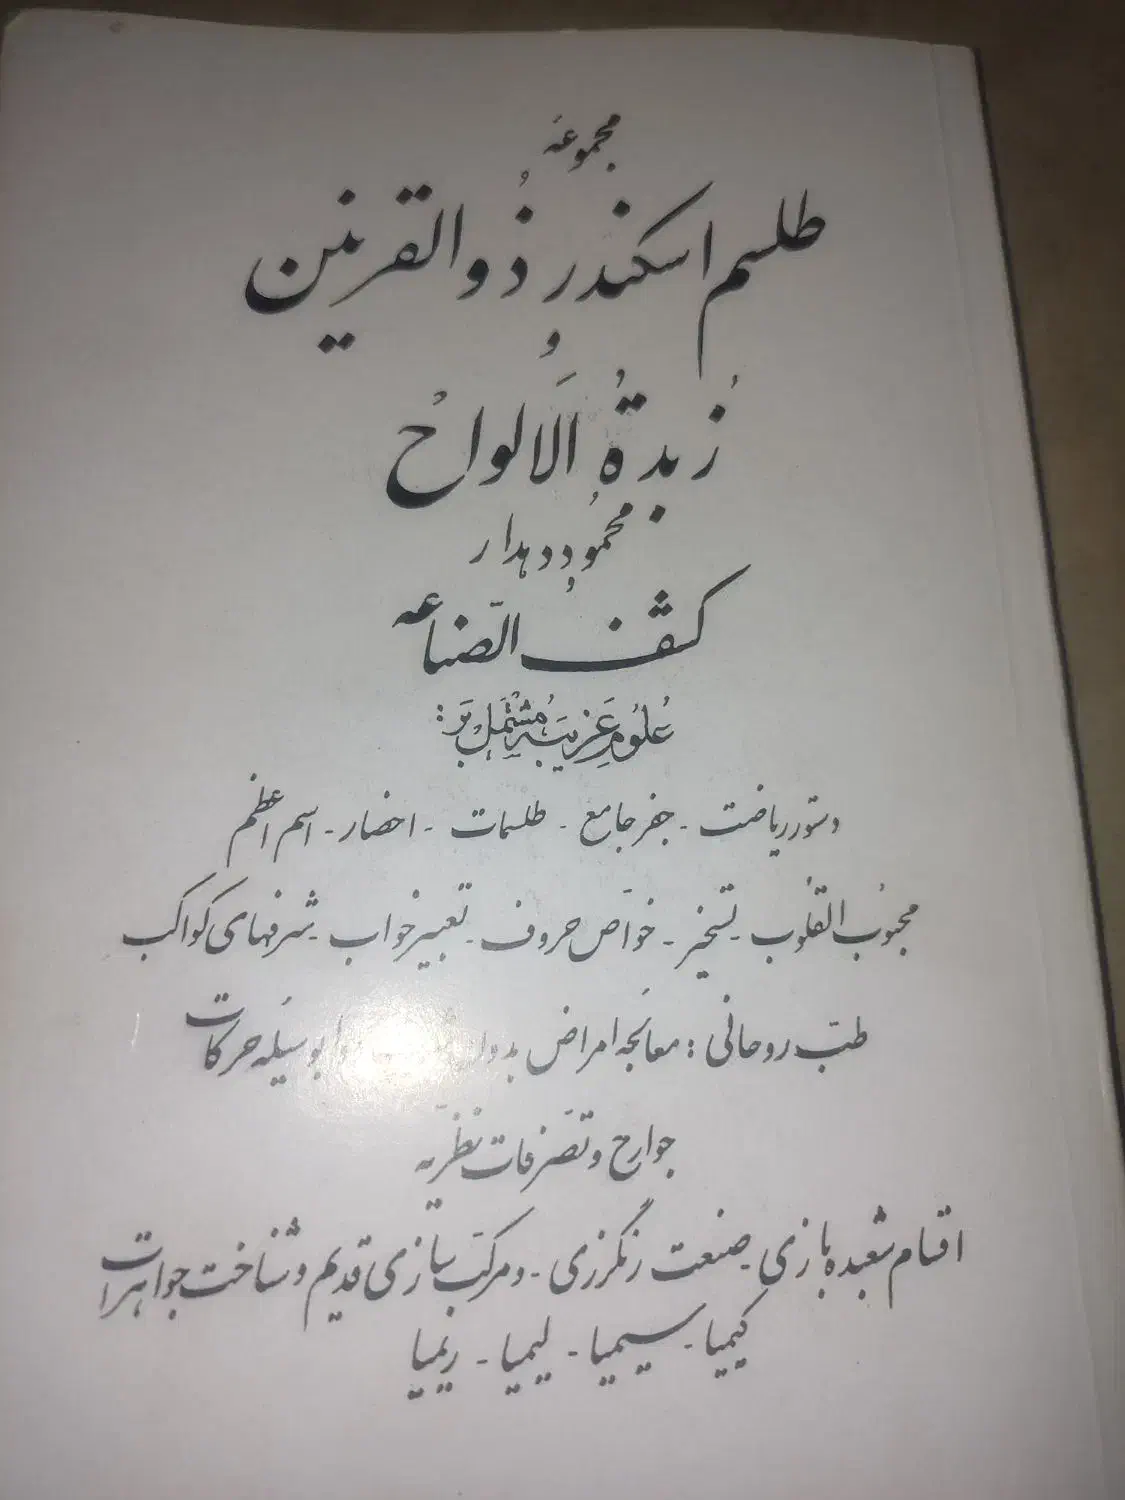 مجموعه
طلسم اسکندر ذوالقرنین
و
زُبدةُ الَالواحُ
محمُود دهدار
و
کشف الصّناعه
عُلومِ غَریبَه مُشتَمِل بَر :
دستور ریاضت - جفر جامع - طلسمات - احضار - اسم اعظم
محبُوبُ القلُوب - تسخیر - خوَاص حروف - تعبیر خواب - شرفهای کواکب
طبّ روحانی : معالجَه امراض بدون بوسیلَه حرکات
جوارح و تصَرفات نظریَه
اقسام شعبده بازی - صنعت رنگرزی - و مرکّب سازی قدیم و شناخت جواهرات
کیمیا - سیمیا - لیمیا - ریمیا